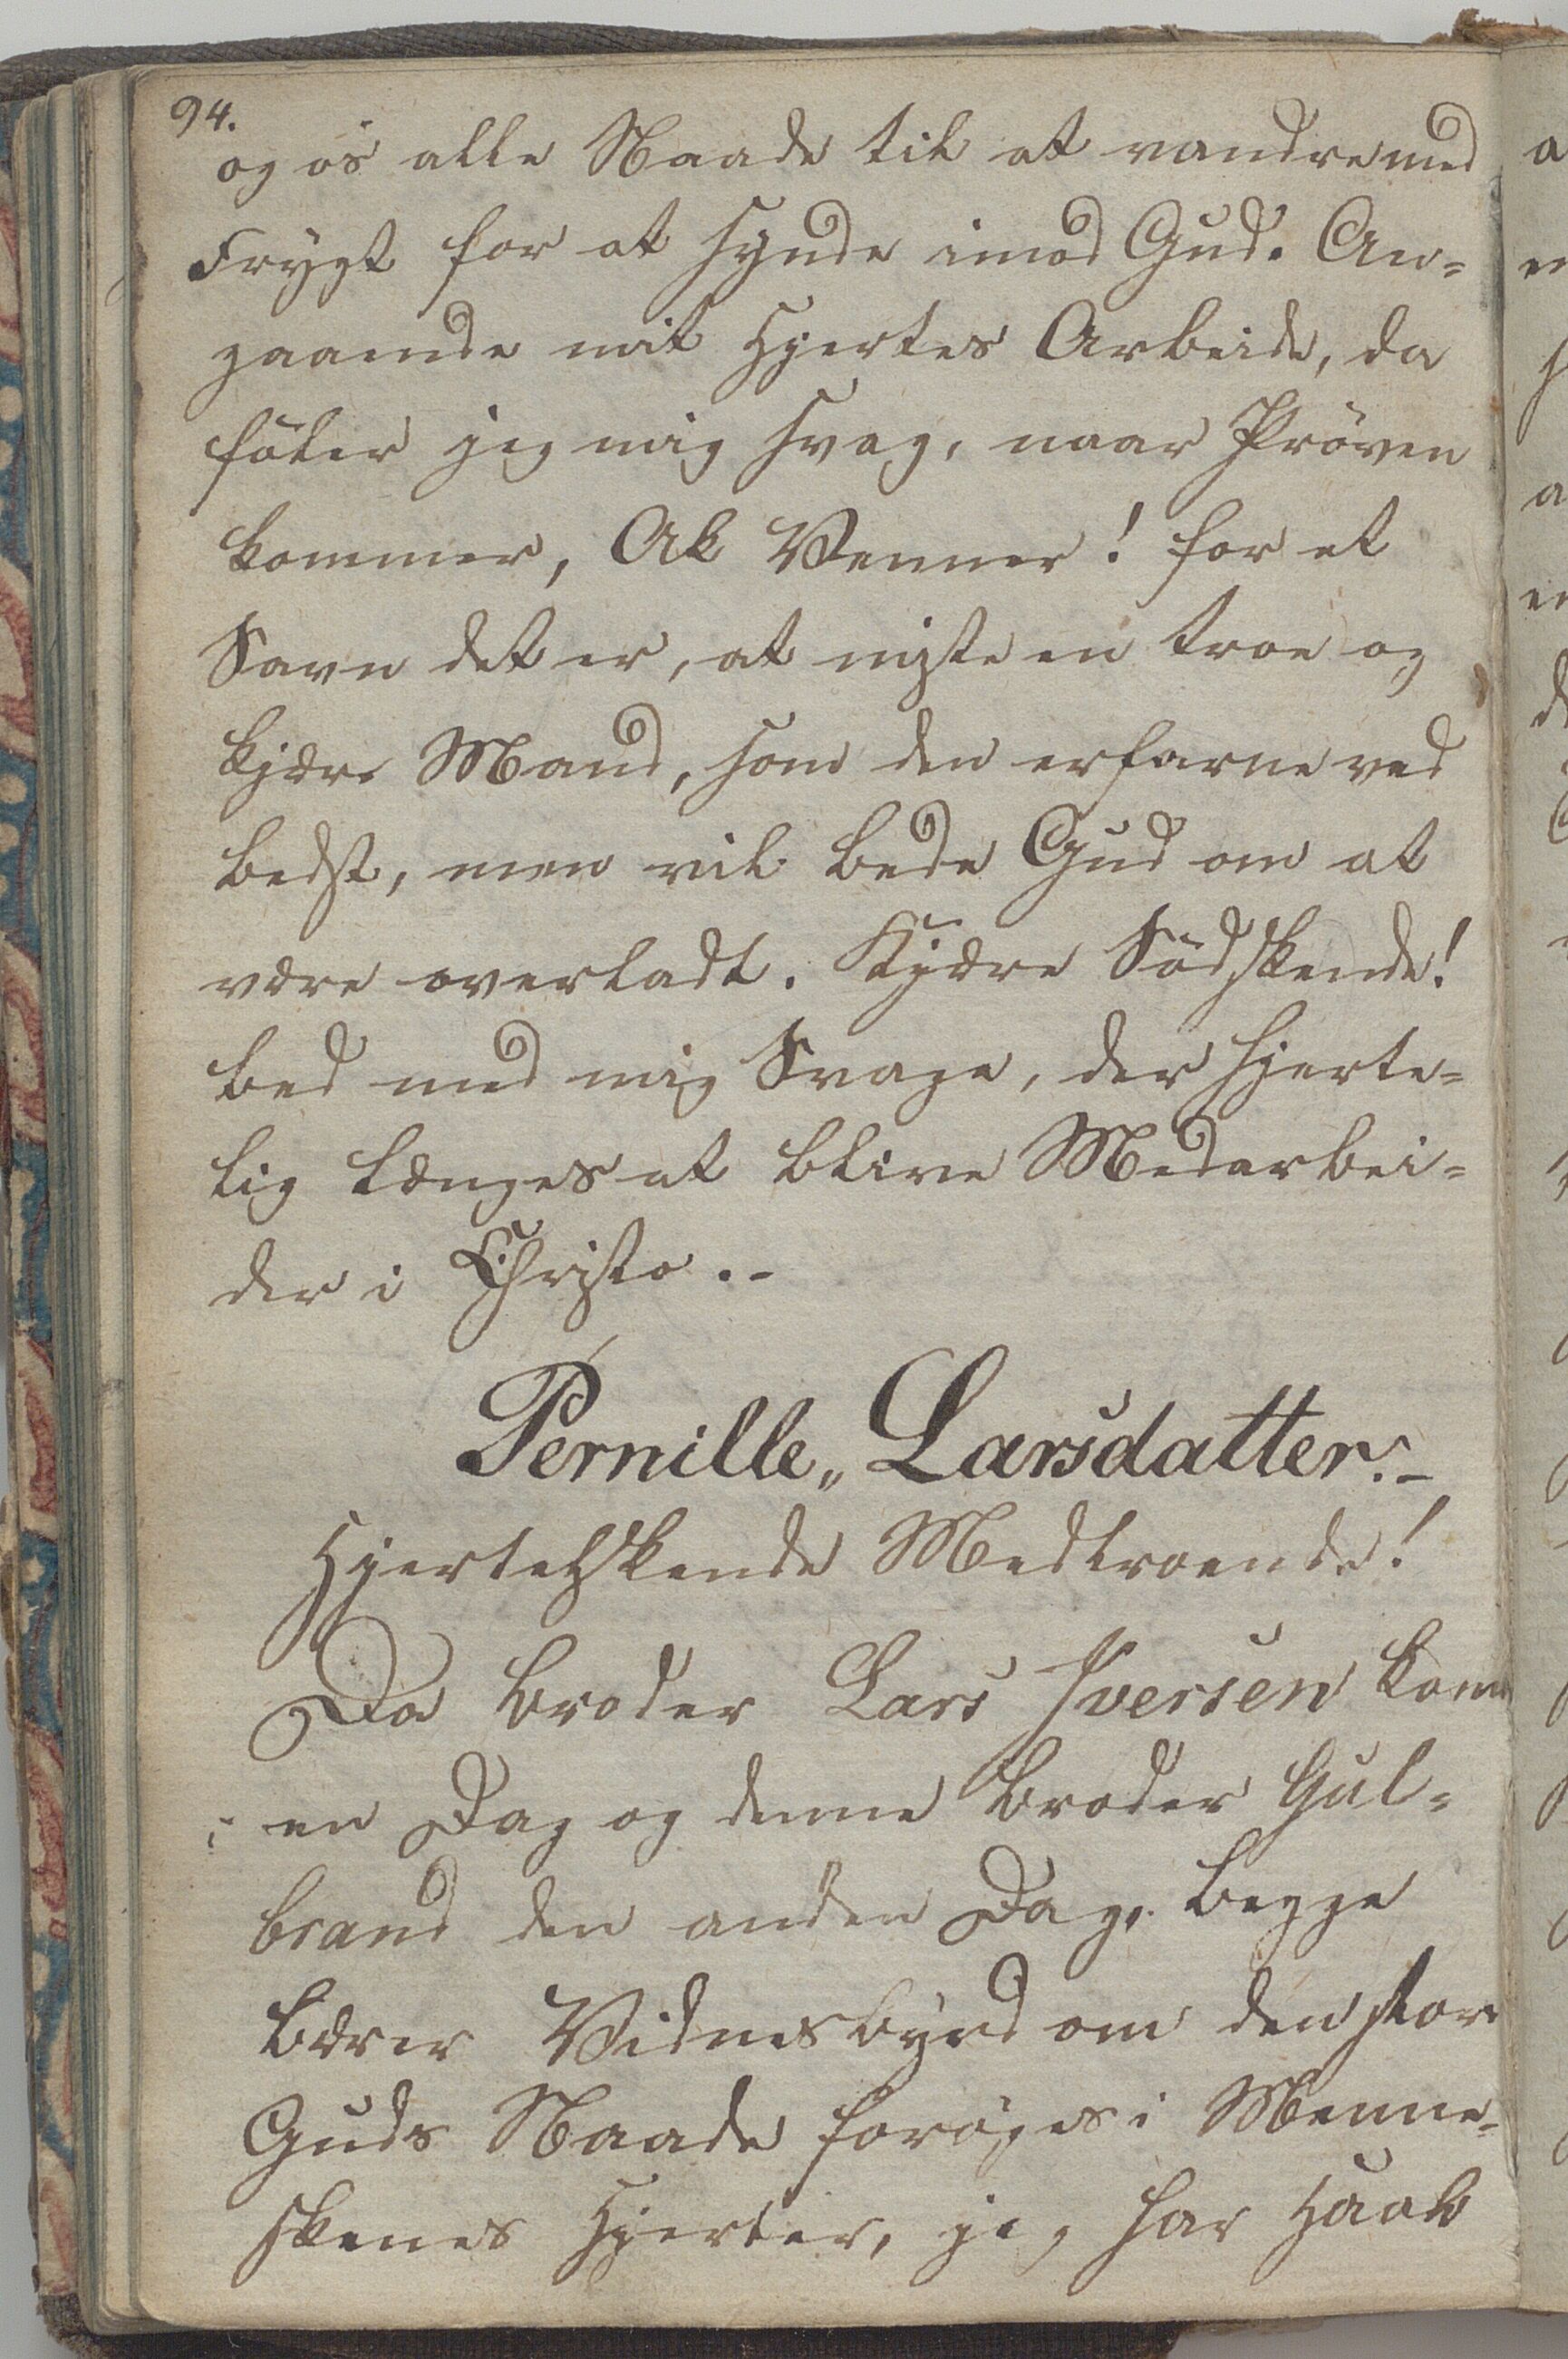 94.
og os alle Naade til at vandre med
Frygt for at synde imod Gud. An-
gaaende mit Hjertes Arbeide, da
føler jeg mig svag, naar Prøven
kommer, Ak Venner! for et
Savn det er, at miste en troe og
kjære Mand, som den erfarne ved
bedst, men vil bede Gud om at
være overladt. Kjære Södskende!
bed med mig Svage, der hjerte-
lig længes at blive Medarbei-
der i Christo.-
Pernille„ Larsdatter.-
Hjertelskende Medtroende!
Da Broder Lars Iversen kom
i en Dag og denne Broder Gul-
brand den anden Dag, begge
bærer Vidnesbyrd om den store
Guds Naade forøges i Menne-
skenes Hjerter, jeg har Haab